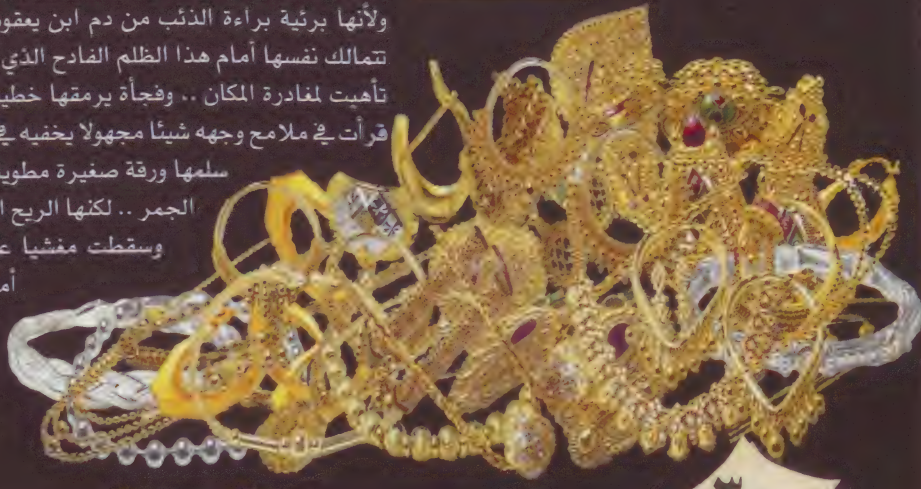 ولأنها بريئة براءة الذئب من دم ابن يعقو
تتمالك نفسها أمام هذا الظلم الفادح الذي
تأهبت لمغادرة المكان .. وفجأة يرمقها خطي
قرأت في ملامح وجهه شيئا مجهولا يخفيه في
سلمها ورقة صغيرة مطوي
الجمر .. لكنها الريح ا
وسقطت مغشيا ع
أم
٣